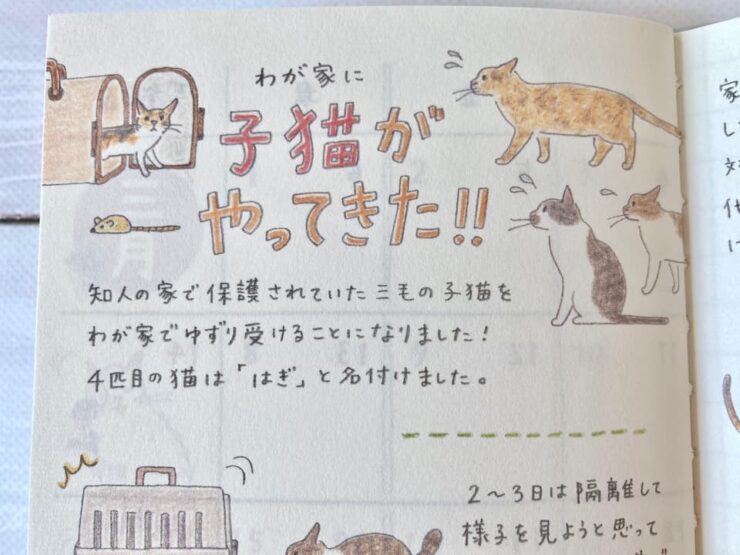 わが家に
子猫が
やってきた!!
知人の家で保護されていた三毛の子猫を
わが家でゆずり受けることになりました!
4匹目の猫は「はぎ」と名付けました。
2〜3日は隔離して
様子を見ようと思って
家
し
対